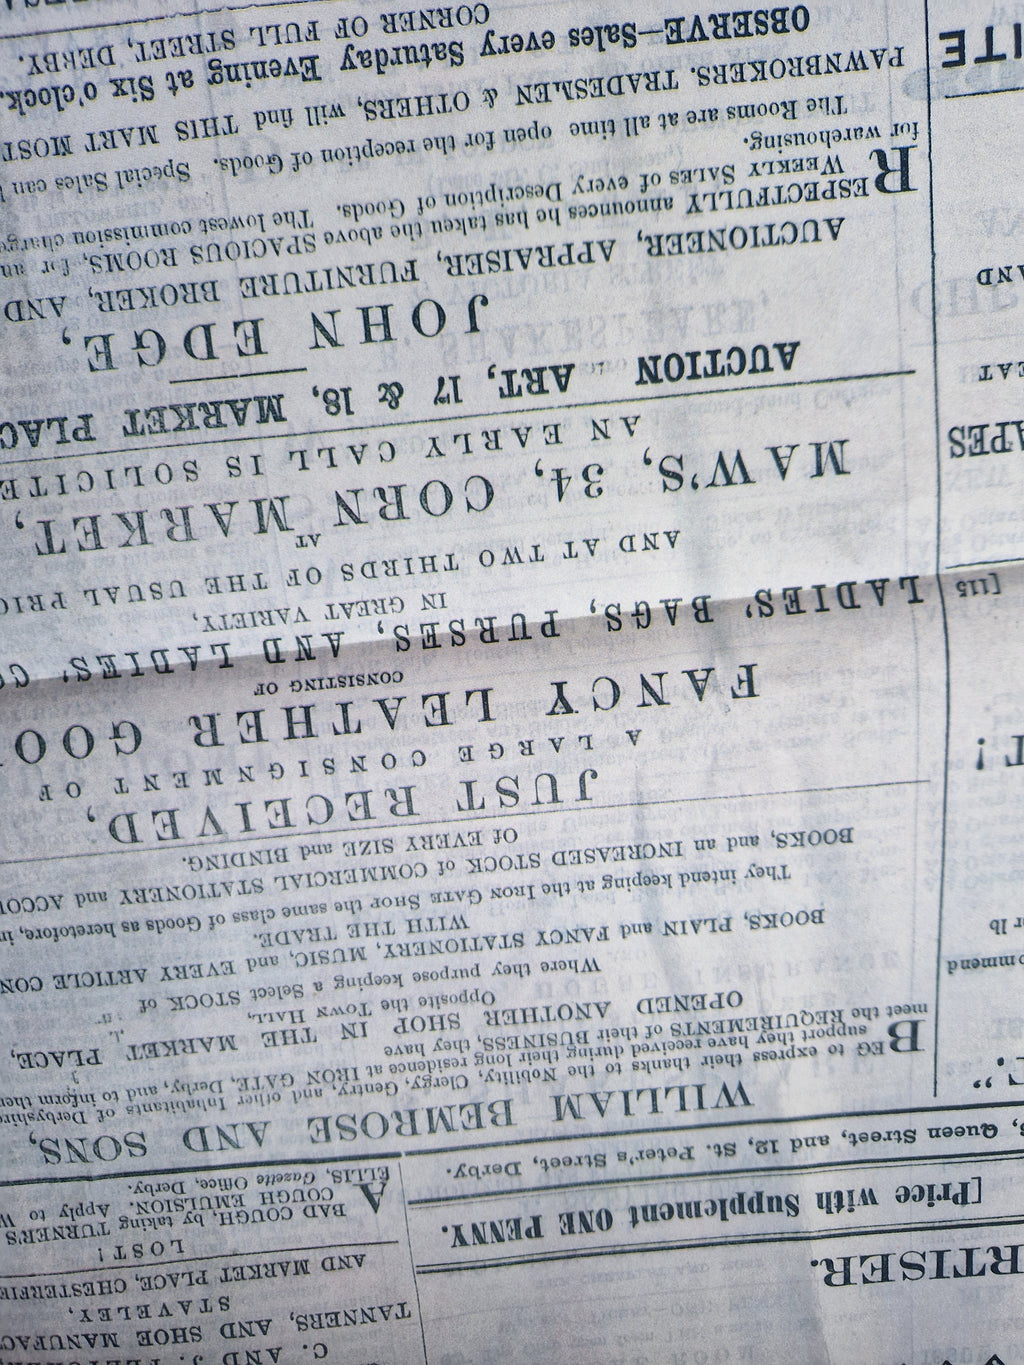 RTISER.
[Price with Supplement ONE PENNY.
Queen Street, and 12, St. Peter's Street, Derby.
C. AND J.
TANNERS, AND SHOE MANUFAC
STAVELEY,
AND MARKET PLACE, CHESTERFIE
LOST!
A BAD COUGH, by taking TURNER'S
COUGH EMULSION. Apply to W
ELLIS, Gazette Office, Derby.
WILLIAM BEMROSE AND SONS,
BEG to express their thanks to the Nobility, Clergy, Gentry, and other Inhabitants of Derbyshire
support they have received during their long residence at IRON GATE, Derby, and to inform them
meet the REQUIREMENTS of their BUSINESS, they have
OPENED ANOTHER SHOP IN THE MARKET PLACE,
Opposite the TOWN HALL,
Where they purpose keeping a Select STOCK of
BOOKS, PLAIN and FANCY STATIONERY, MUSIC, and EVERY ARTICLE CON
WITH THE TRADE.
They intend keeping at the IRON GATE SHOP the same class of Goods as heretofore, in
BOOKS, and an INCREASED STOCK of COMMERCIAL STATIONERY and ACCOU
Of EVERY SIZE and BINDING.
JUST RECEIVED,
A LARGE CONSIGNMENT OF
FANCY LEATHER GOO
CONSISTING OF
LADIES' BAGS, PURSES, AND LADIES' C
IN GREAT VARIETY,
AND AT TWO THIRDS OF THE USUAL PRIC
AT
MAW'S, 34, CORN MARKET,
AN EARLY CALL IS SOLICITE
AUCTION ART, 17 & 18, MARKET PLAC
JOHN EDGE,
AUCTIONEER, APPRAISER, FURNITURE BROKER, AND
RESPECTFULLY announces he has taken the above SPACIOUS ROOMS, for
WEEKLY SALES of every Description of Goods. The lowest commission charge
for warehousing.
The Rooms are at all time open for the reception of Goods. Special Sales can
PAWNBROKERS. TRADESMEN & OTHERS, will find THIS MART MOST
OBSERVE—Sales every Saturday Evening at Six o'clock.
CORNER OF FULL STREET, DERBY.
ommend
r lb
T!
[115
APES
EAT
AND
ITE